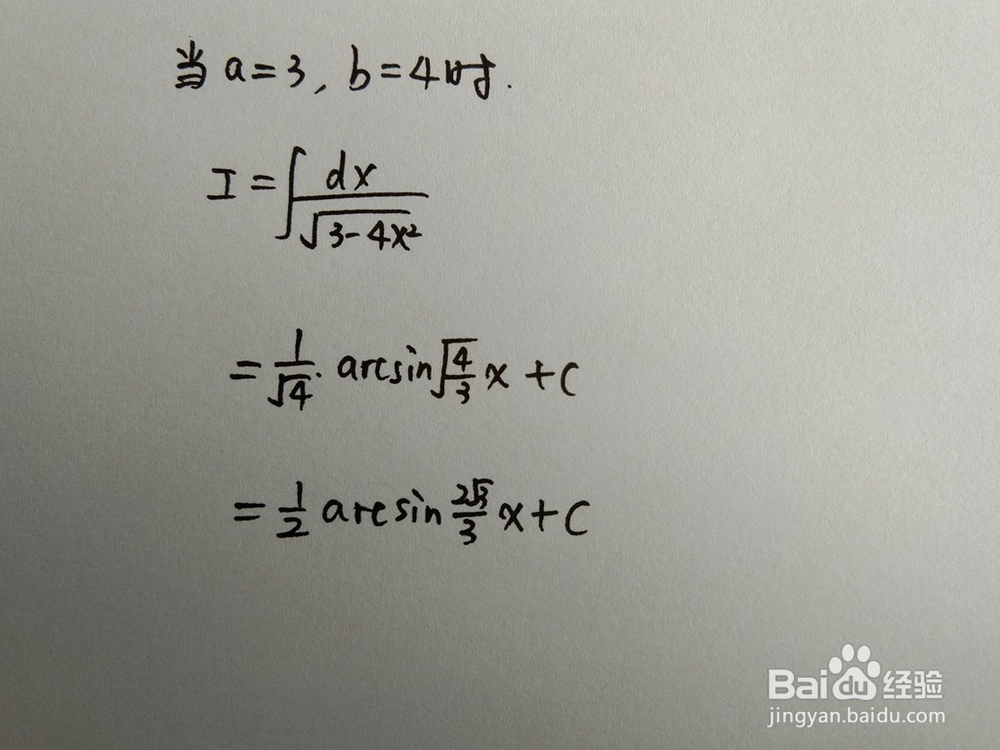 当 a=3, b=4时.
I=∫dx/√(3-4x²)
=1/√4·arcsin√(4/3)x+C
=1/2 arcsin 2√3/3 x+C
Bai du 经验
jingyan.baidu.com